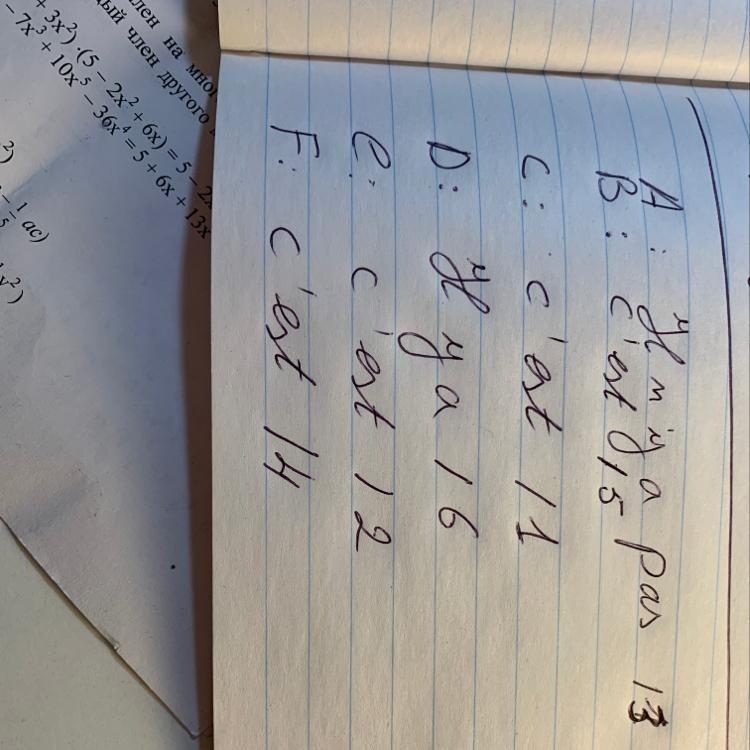 A: Il n'y a pas 13
B: c'est 15
C: c'est 11
D: Il y a 16
e: c'est 12
F: c'est 14
на
член другого
+ 3x²) · (5 − 2x² + 6x) = 5 − 2x
− 7x³ + 10x⁵ − 36x⁴ = 5 + 6x + 13x